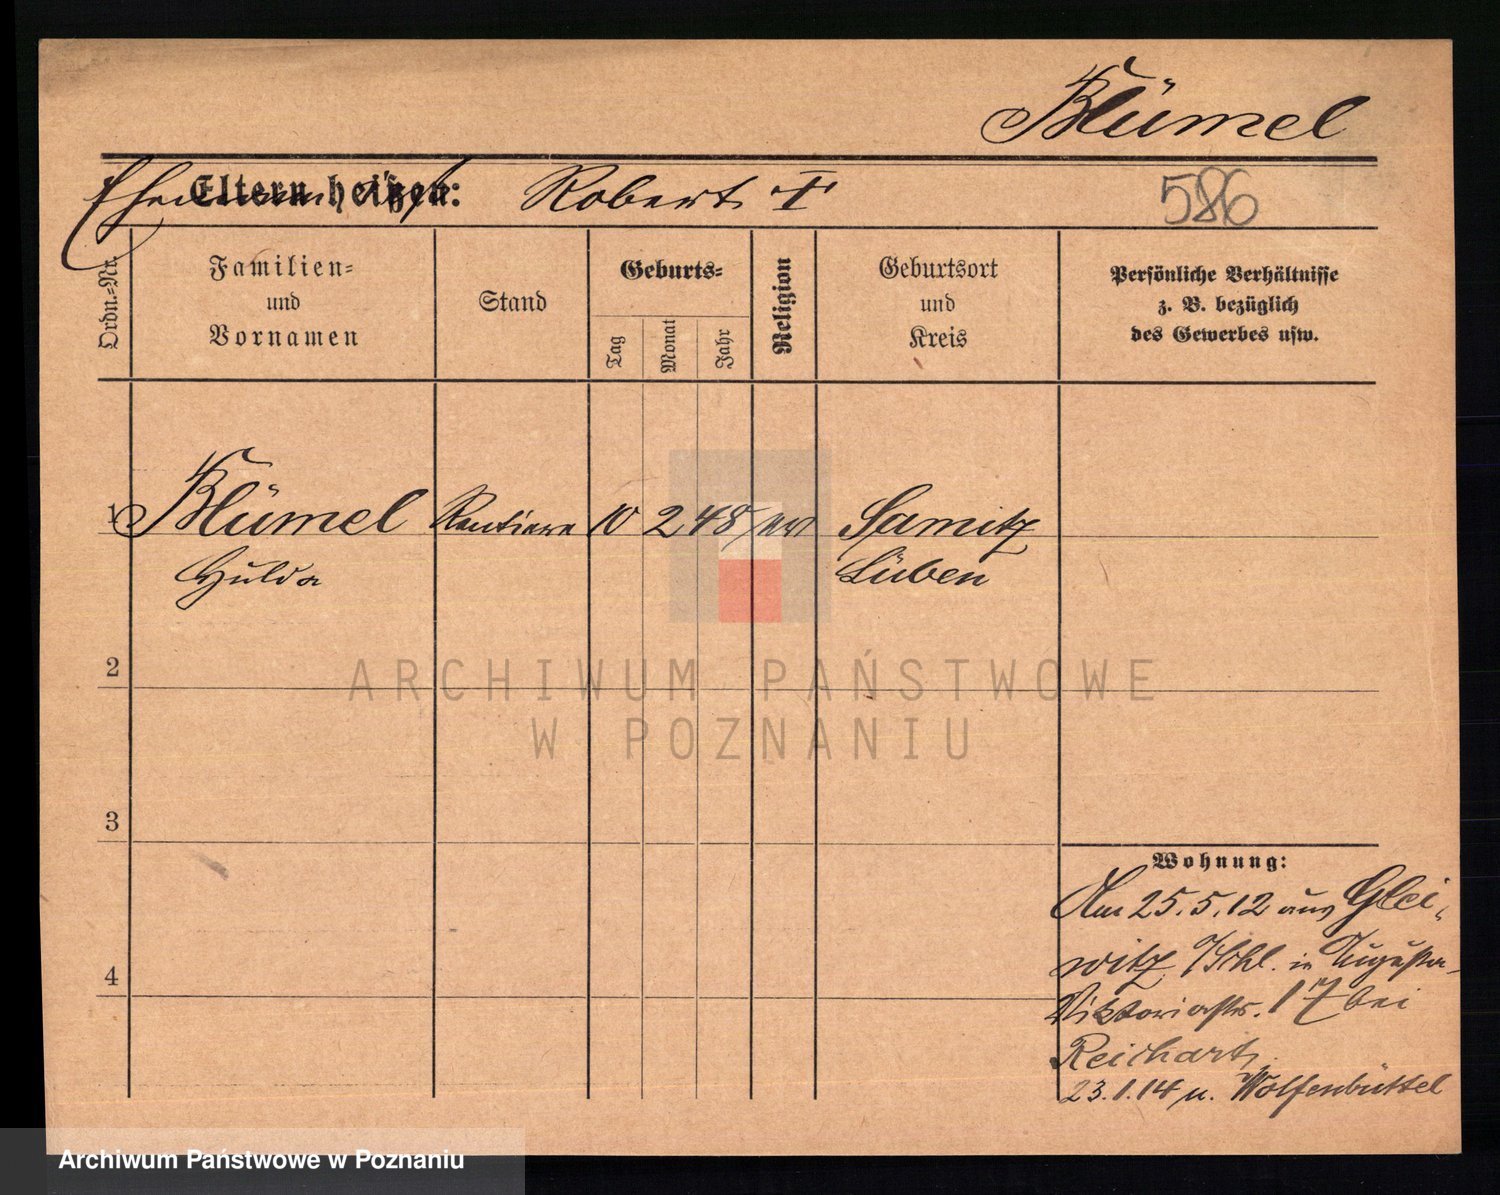 Blümel
Eltern heißen: Robert †
586
Ordn.-Nr.
Familien-
und
Vornamen
Stand
Geburts-
Tag
Monat
Jahr
Religion
Geburtsort
und
Kreis
Persönliche Verhältnisse
z. B. bezüglich
des Gewerbes usw.
1 Blümel Rentiere 10 2 48 ev Samitz
Hulda Lüben
2
3
4
Wohnung:
Am 25.5.12 aus Glei-
witz /Schl. in Augusta-
Viktoriastr. 17 bei
Reichart
23.1.14 n. Wolfenbüttel
ARCHIWUM PAŃSTWOWE
W POZNANIU
Archiwum Państwowe w Poznaniu